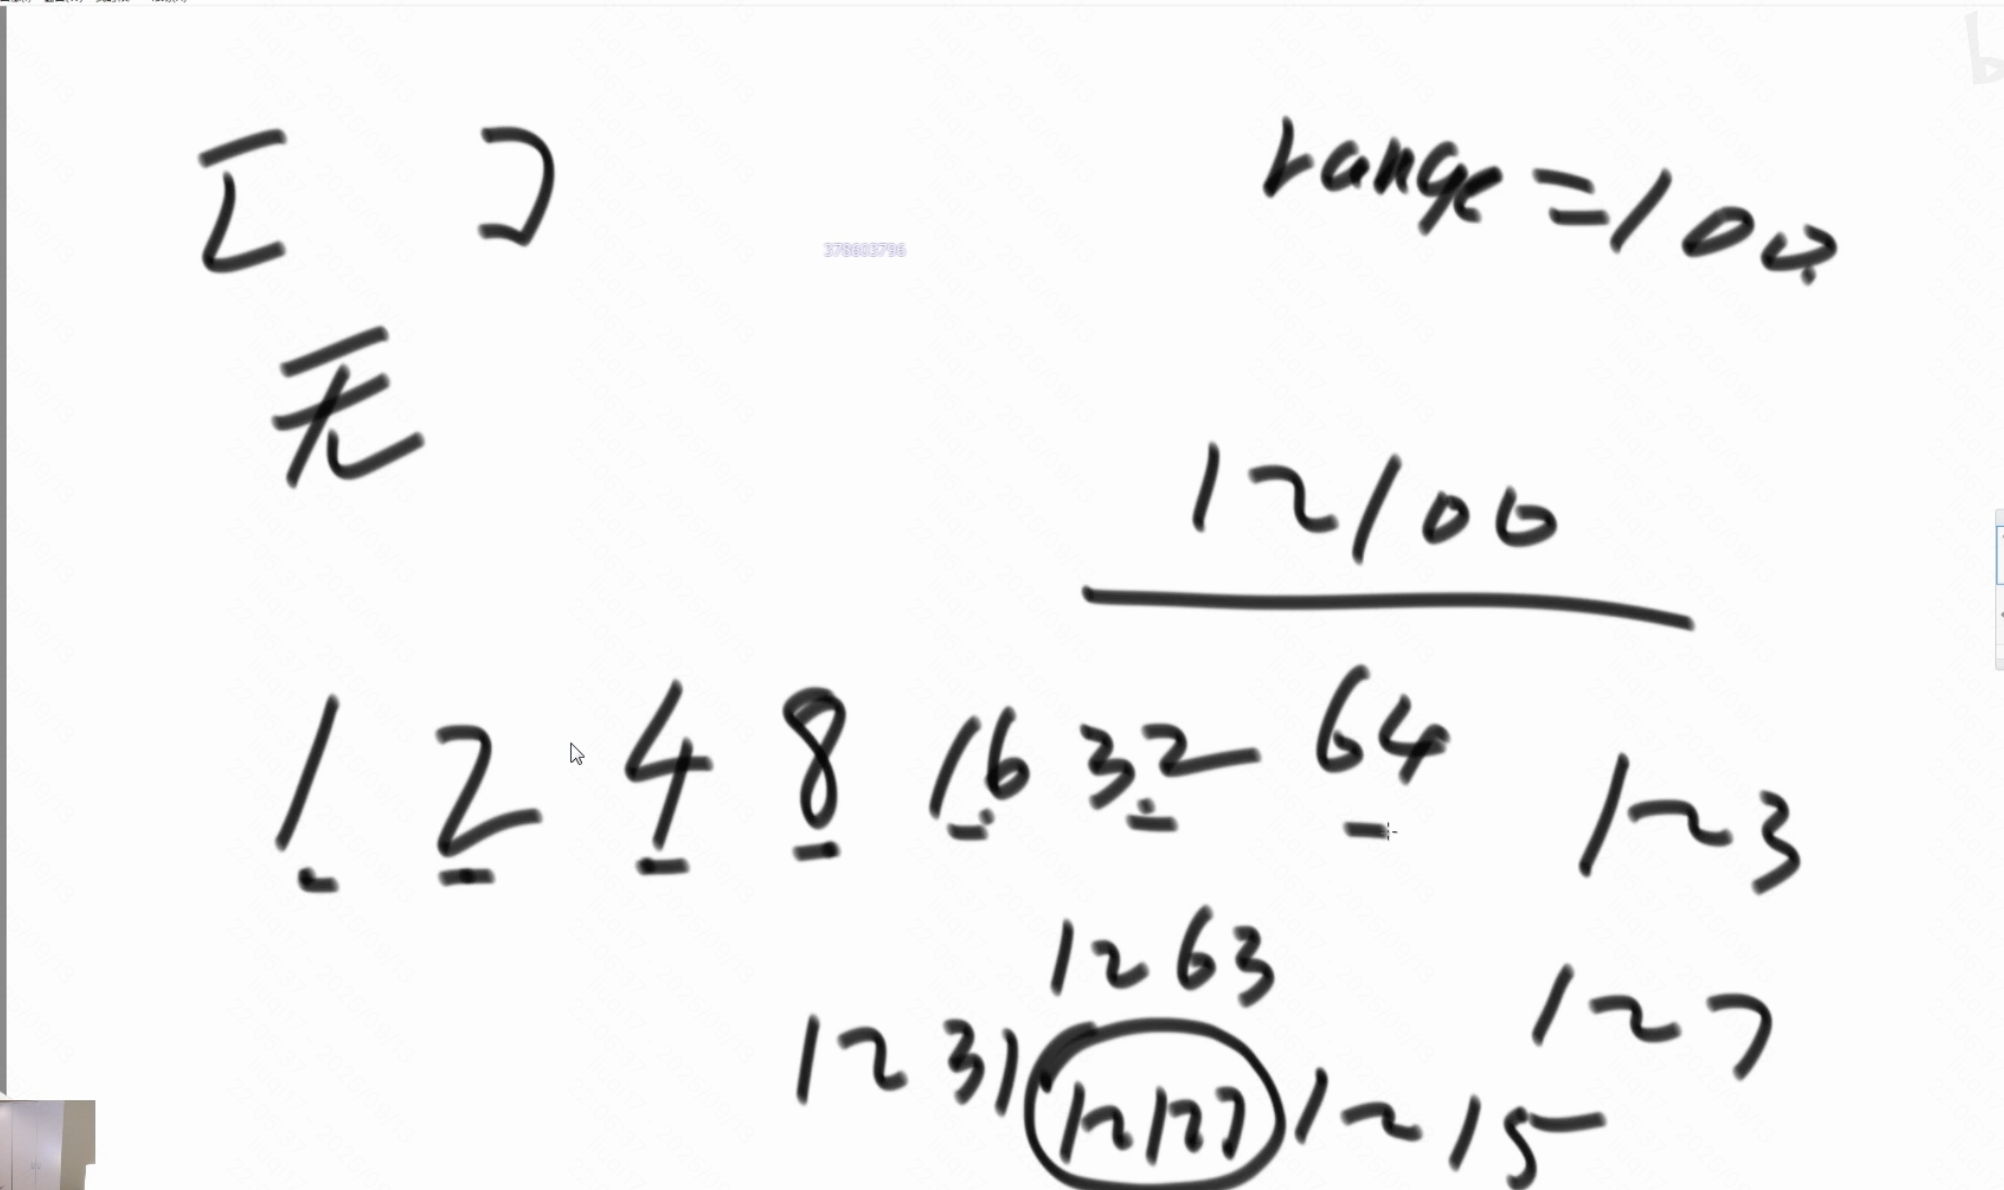 [ ]
range=100
378603796
无
1~100
1 2 4 8 16 32 64
1~3
1~63
1~7
1~31
1~127
1~15